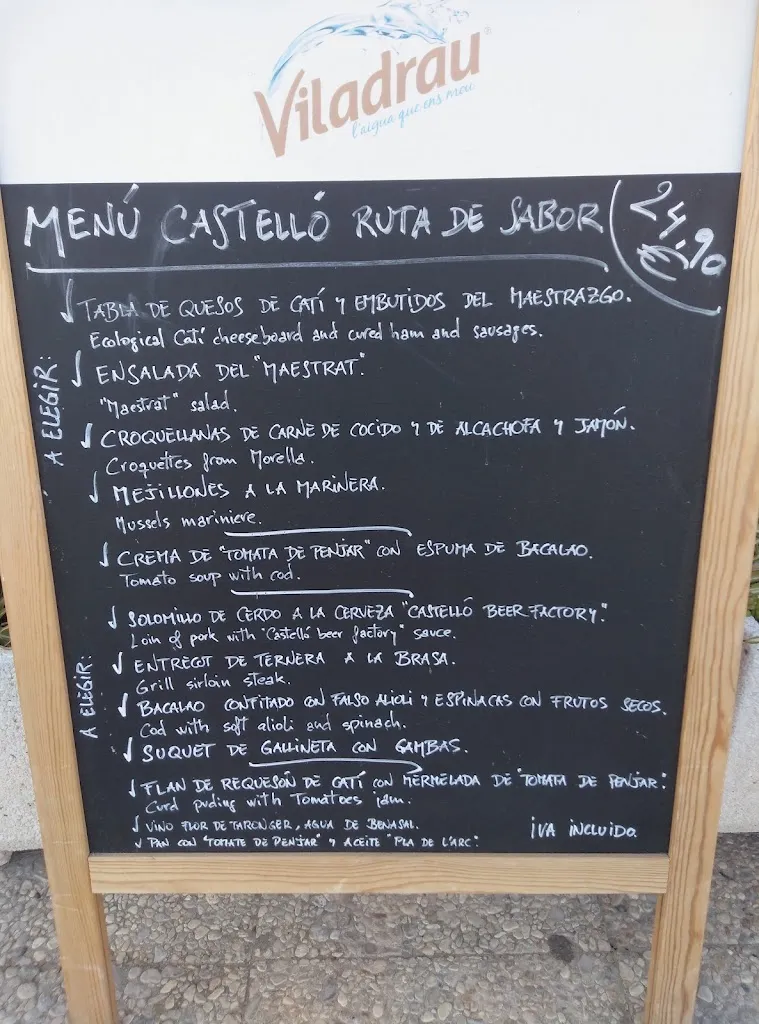 Viladrau®
l'aigua que ens mou
MENÚ CASTELLÓ RUTA DE SABOR 24,90 €
A ELEGIR:
TABLA DE QUESOS DE CATÍ Y EMBUTIDOS DEL MAESTRAZGO.
Ecological Catí cheeseboard and cured ham and sausages.
ENSALADA DEL "MAESTRAT".
"Maestrat" salad.
CROQUELLANAS DE CARNE DE COCIDO Y DE ALCACHOFA Y JAMÓN.
Croquettes from Morella.
MEJILLONES A LA MARINERA.
Mussels mariniere.
CREMA DE "TOMATA DE PENJAR" CON ESPUMA DE BACALAO.
Tomato soup with cod.
A ELEGIR:
SOLOMILLO DE CERDO A LA CERVEZA "CASTELLÓ BEER FACTORY".
Loin of pork with "Castelló beer factory" sauce.
ENTRECOT DE TERNERA A LA BRASA.
Grill sirloin steak.
BACALAO CONFITADO CON FALSO ALIOLI Y ESPINACAS CON FRUTOS SECOS.
Cod with soft alioli and spinach.
SUQUET DE GALLINETA CON GAMBAS.
FLAN DE REQUESÓN DE CATÍ CON MERMELADA DE "TOMATA DE PENJAR".
Curd puding with Tomatoes jam.
VINO FLOR DE TARONGER, AGUA DE BENASAL.
IVA INCLUIDO.
PAN CON "TOMATE DE PENJAR" Y ACEITE "PLA DE L'ARC".